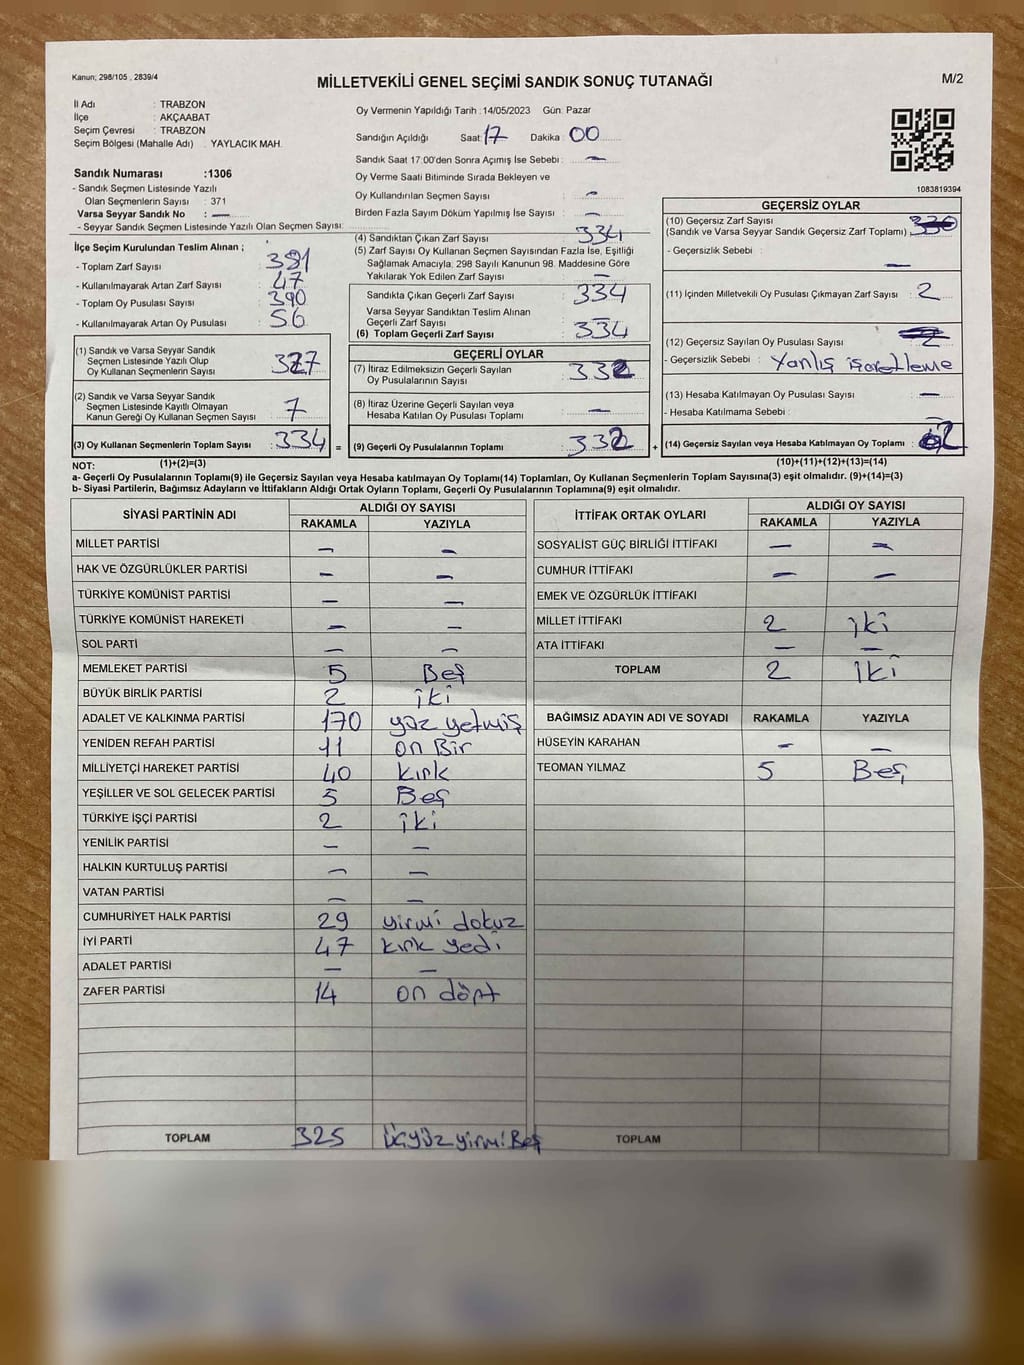 Kanun; 298/105 , 2839/4
MİLLETVEKİLİ GENEL SEÇİMİ SANDIK SONUÇ TUTANAĞI
M/2
İl Adı : TRABZON
İlçe : AKÇAABAT
Seçim Çevresi : TRABZON
Seçim Bölgesi (Mahalle Adı) : YAYLACIK MAH.
Sandık Numarası :1306
- Sandık Seçmen Listesinde Yazılı
Olan Seçmenlerin Sayısı : 371
Varsa Seyyar Sandık No : —
- Seyyar Sandık Seçmen Listesinde Yazılı Olan Seçmen Sayısı:
İlçe Seçim Kurulundan Teslim Alınan ;
- Toplam Zarf Sayısı : 381
- Kullanılmayarak Artan Zarf Sayısı : 47
- Toplam Oy Pusulası Sayısı : 390
- Kullanılmayarak Artan Oy Pusulası : 56
(1) Sandık ve Varsa Seyyar Sandık
Seçmen Listesinde Yazılı Olup
Oy Kullanan Seçmenlerin Sayısı : 327
(2) Sandık ve Varsa Seyyar Sandık
Seçmen Listesinde Kayıtlı Olmayan
Kanun Gereği Oy Kullanan Seçmen Sayısı : 7
(3) Oy Kullanan Seçmenlerin Toplam Sayısı : 334 =
(1)+(2)=(3)
Oy Vermenin Yapıldığı Tarih : 14/05/2023 Gün: Pazar
Sandığın Açıldığı Saat: 17 Dakika 00
Sandık Saat 17:00'den Sonra Açımış İse Sebebi : —
Oy Verme Saati Bitiminde Sırada Bekleyen ve
Oy Kullandırılan Seçmen Sayısı : —
Birden Fazla Sayım Döküm Yapılmış İse Sayısı : —
(4) Sandıktan Çıkan Zarf Sayısı : 334
(5) Zarf Sayısı Oy Kullanan Seçmen Sayısından Fazla İse, Eşitliği
Sağlamak Amacıyla, 298 Sayılı Kanunun 98. Maddesine Göre
Yakılarak Yok Edilen Zarf Sayısı : —
Sandıkta Çıkan Geçerli Zarf Sayısı : 334
Varsa Seyyar Sandıktan Teslim Alınan
Geçerli Zarf Sayısı : —
(6) Toplam Geçerli Zarf Sayısı : 334
GEÇERLİ OYLAR
(7) İtiraz Edilmeksizin Geçerli Sayılan
Oy Pusulalarının Sayısı : 332
(8) İtiraz Üzerine Geçerli Sayılan veya
Hesaba Katılan Oy Pusulası Toplamı : —
(9) Geçerli Oy Pusulalarının Toplamı : 332 +
1083819394
GEÇERSİZ OYLAR
(10) Geçersiz Zarf Sayısı
(Sandık ve Varsa Seyyar Sandık Geçersiz Zarf Toplamı) :
- Geçersizlik Sebebi : —
(11) İçinden Milletvekili Oy Pusulası Çıkmayan Zarf Sayısı : 2
(12) Geçersiz Sayılan Oy Pusulası Sayısı :
- Geçersizlik Sebebi : Yanlış işaretleme
(13) Hesaba Katılmayan Oy Pusulası Sayısı : —
- Hesaba Katılmama Sebebi : —
(14) Geçersiz Sayılan veya Hesaba Katılmayan Oy Toplamı : 2
(10)+(11)+(12)+(13)=(14)
NOT:
a- Geçerli Oy Pusulalarının Toplamı(9) ile Geçersiz Sayılan veya Hesaba katılmayan Oy Toplamı(14) Toplamları, Oy Kullanan Seçmenlerin Toplam Sayısına(3) eşit olmalıdır. (9)+(14)=(3)
b- Siyasi Partilerin, Bağımsız Adayların ve İttifakların Aldığı Ortak Oyların Toplamı, Geçerli Oy Pusulalarının Toplamına(9) eşit olmalıdır.
SİYASİ PARTİNİN ADI ALDIĞI OY SAYISI
RAKAMLA YAZIYLA
MİLLET PARTİSİ — —
HAK VE ÖZGÜRLÜKLER PARTİSİ — —
TÜRKİYE KOMÜNİST PARTİSİ — —
TÜRKİYE KOMÜNİST HAREKETİ — —
SOL PARTİ — —
MEMLEKET PARTİSİ 5 Beş
BÜYÜK BİRLİK PARTİSİ 2 iki
ADALET VE KALKINMA PARTİSİ 170 yüz yetmiş
YENİDEN REFAH PARTİSİ 11 on Bir
MİLLİYETÇİ HAREKET PARTİSİ 40 kırk
YEŞİLLER VE SOL GELECEK PARTİSİ 5 Beş
TÜRKİYE İŞÇİ PARTİSİ 2 iki
YENİLİK PARTİSİ — —
HALKIN KURTULUŞ PARTİSİ — —
VATAN PARTİSİ — —
CUMHURİYET HALK PARTİSİ 29 yirmi dokuz
İYİ PARTİ 47 kırk yedi
ADALET PARTİSİ — —
ZAFER PARTİSİ 14 on dört
TOPLAM 325 üçyüz yirmi Beş
İTTİFAK ORTAK OYLARI ALDIĞI OY SAYISI
RAKAMLA YAZIYLA
SOSYALİST GÜÇ BİRLİĞİ İTTİFAKI — —
CUMHUR İTTİFAKI — —
EMEK VE ÖZGÜRLÜK İTTİFAKI
MİLLET İTTİFAKI 2 iki
ATA İTTİFAKI — —
TOPLAM 2 iki
BAĞIMSIZ ADAYIN ADI VE SOYADI RAKAMLA YAZIYLA
HÜSEYİN KARAHAN — —
TEOMAN YILMAZ 5 Beş
TOPLAM